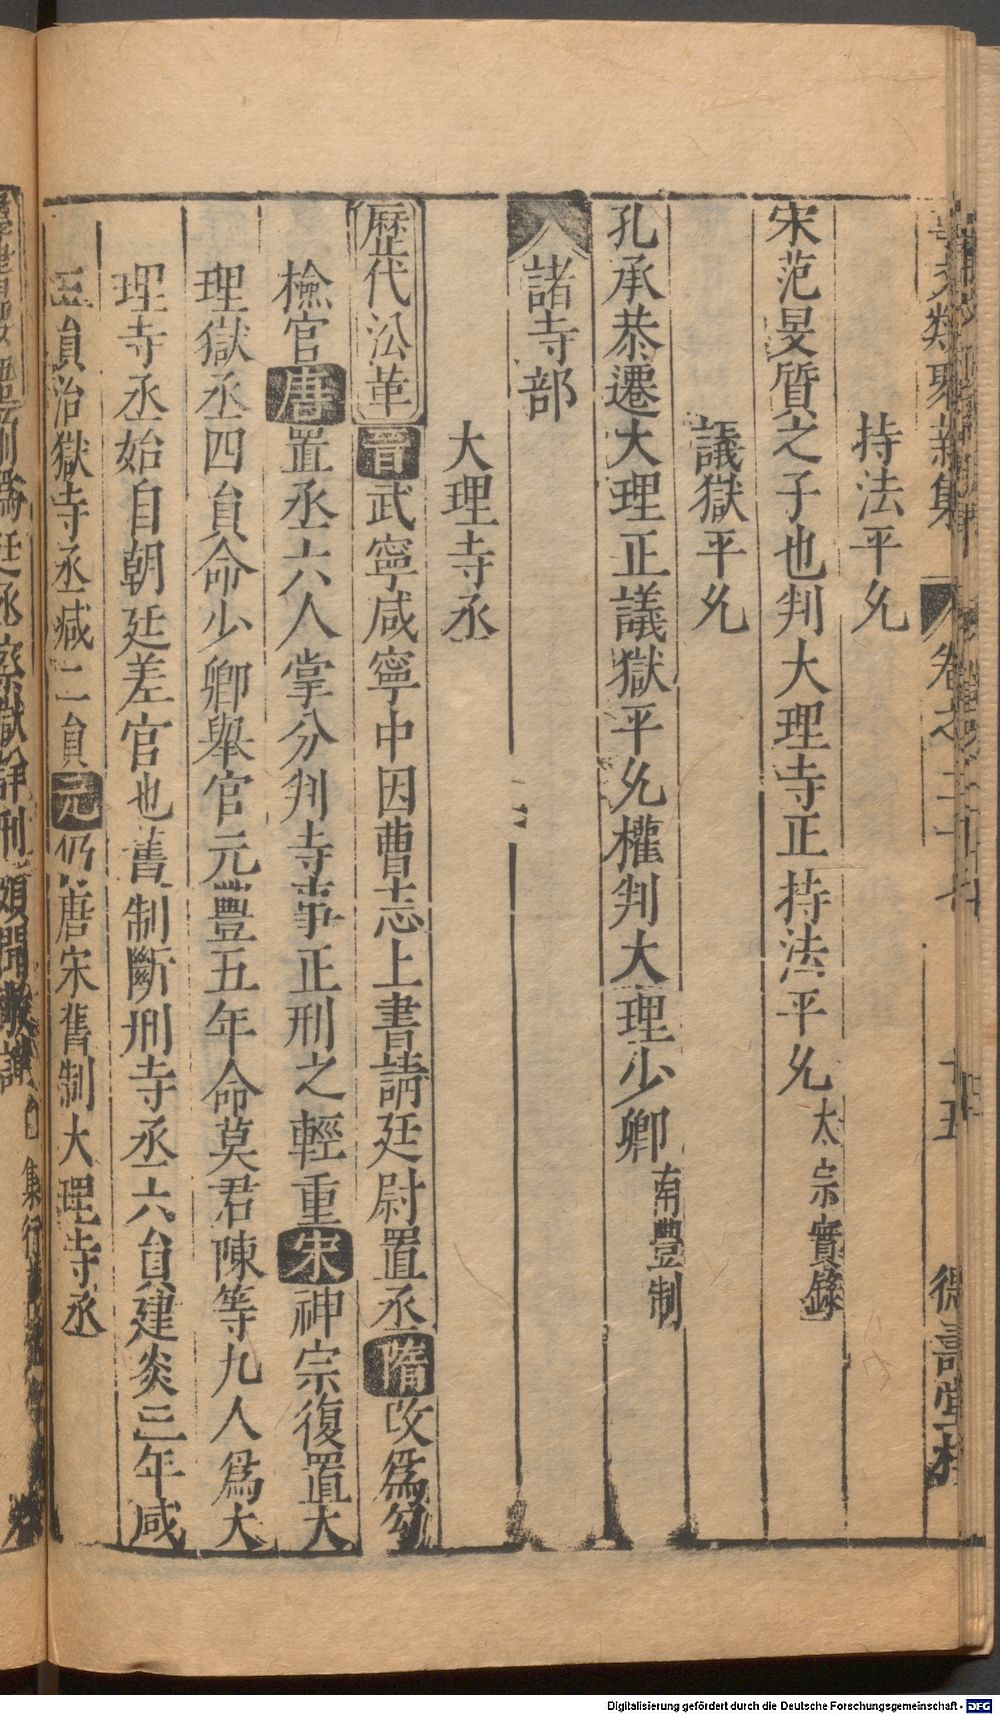 事文類聚新集 卷之二十七 十五 德壽堂梓
持法平允
宋范旻質之子也判大理寺正持法平允太宗實錄
議獄平允
孔承恭遷大理正議獄平允權判大理少卿南豐制
諸寺部
大理寺丞
歷代沿革 晉武寧咸寧中因曹志上書請廷尉置丞隋改爲勾
檢官唐置丞六人掌分判寺事正刑之輕重宋神宗復置大
理獄丞四員命少卿舉官元豐五年命莫君陳等九人爲大
理寺丞始自朝廷差官也舊制斷刑寺丞六員建炎三年咸
三員治獄寺丞减二員元仍唐宋舊制大理寺丞
Digitalisierung gefördert durch die Deutsche Forschungsgemeinschaft - DFG